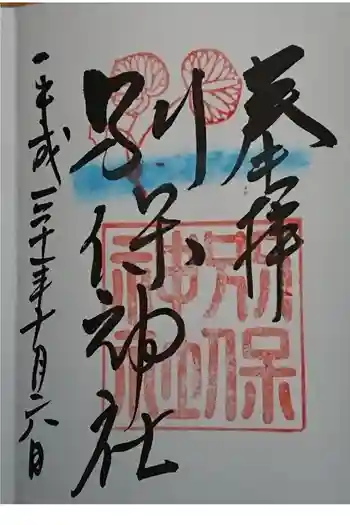 奉拝
別保神社
平成三十年十月日
別保
神社